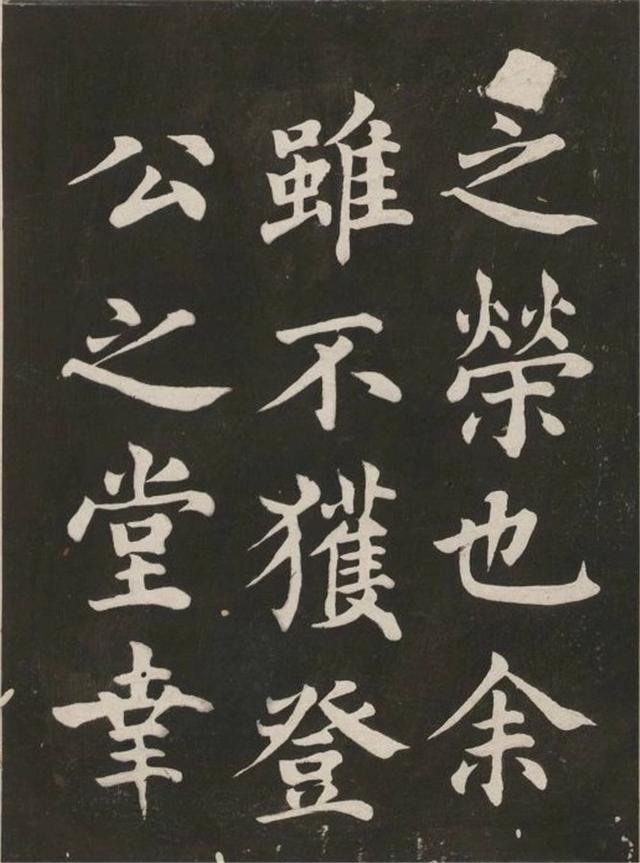 之榮也余
雖不獲登
公之堂幸